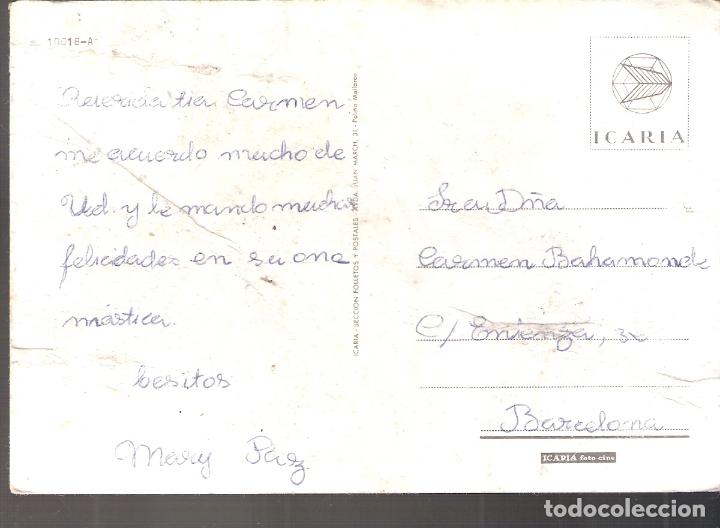 10018-A
Querida tia Carmen
me acuerdo mucho de
Ud. y le mando muchas
felicidades en su ono
mástica.
besitos
Mary Paz.
ICARIA - SECCION FOLLETOS Y POSTALES - AVDA. JUAN MARCH, 31 - Palma Mallorca
ICARIA
Sra Dña
Carmen Bahamonde
C/
Barcelona
ICARIA foto-cine
todocoleccion